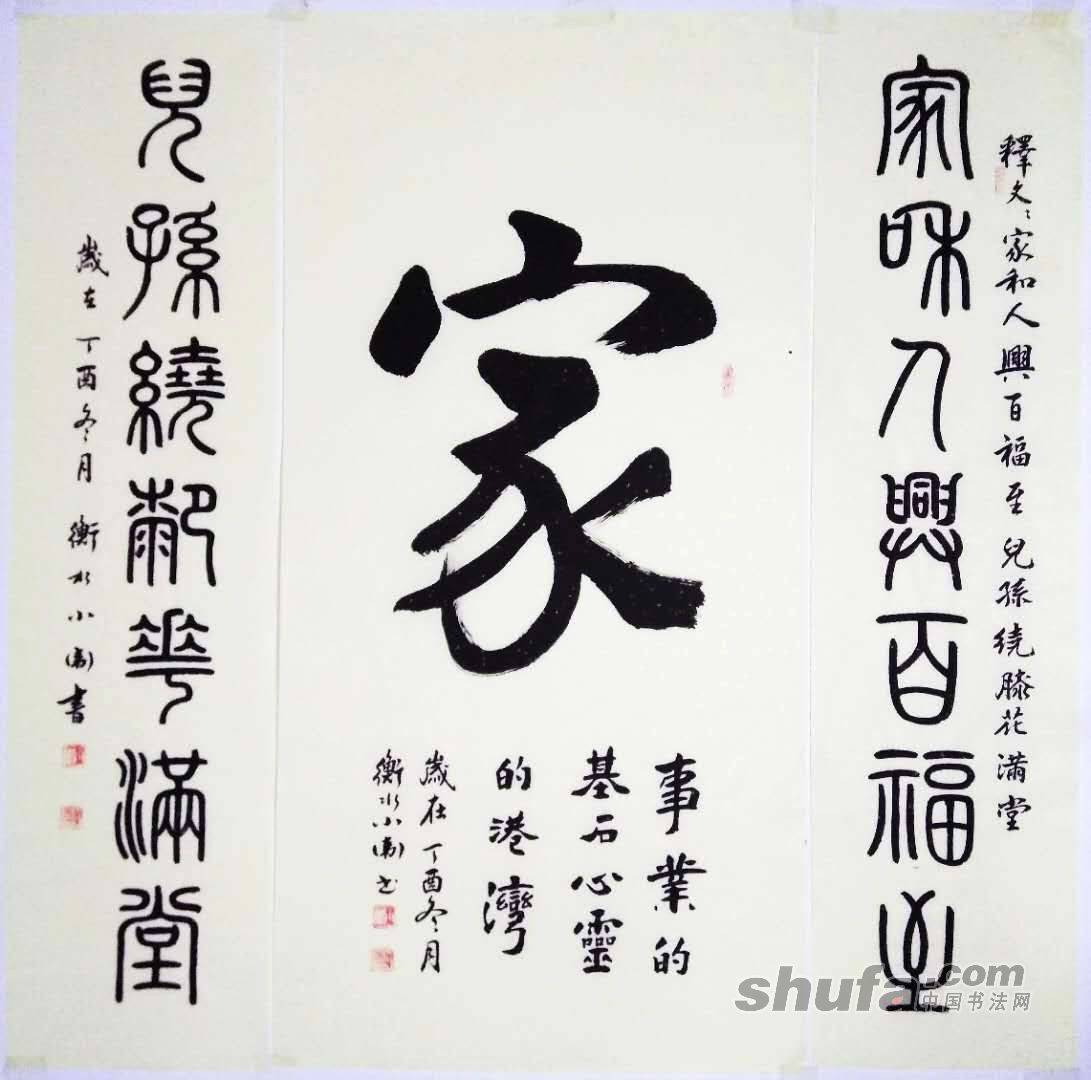 釋文:家和人興百福至 兒孫绕膝花满堂
家和人興百福至
家
事業的
基石心靈
的港灣
歲在丁酉冬月
衡水小书
兒孫繞厀華滿堂
歲在丁酉冬月 衡水小書
shufa.com
中国书法网